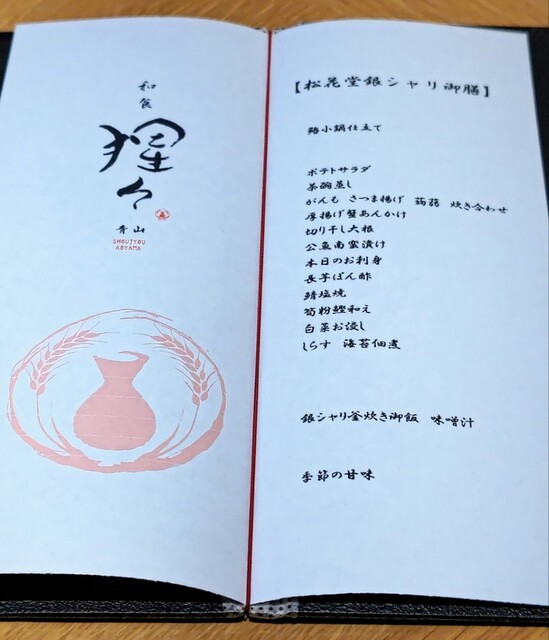 和食
猩々
青山
SHOUJYOU
AOYAMA
【松花堂銀シャリ御膳】
小鍋仕立て
ポテトサラダ
茶碗蒸し
がんも さつま揚げ 蒟蒻 炊き合わせ
厚揚げ蟹あんかけ
切り干し大根
公魚南蛮漬け
本日のお刺身
長芋ぽん酢
鯖塩焼
筍粉鰹和え
白菜お浸し
しらす 海苔佃煮
銀シャリ釜炊き御飯 味噌汁
季節の甘味